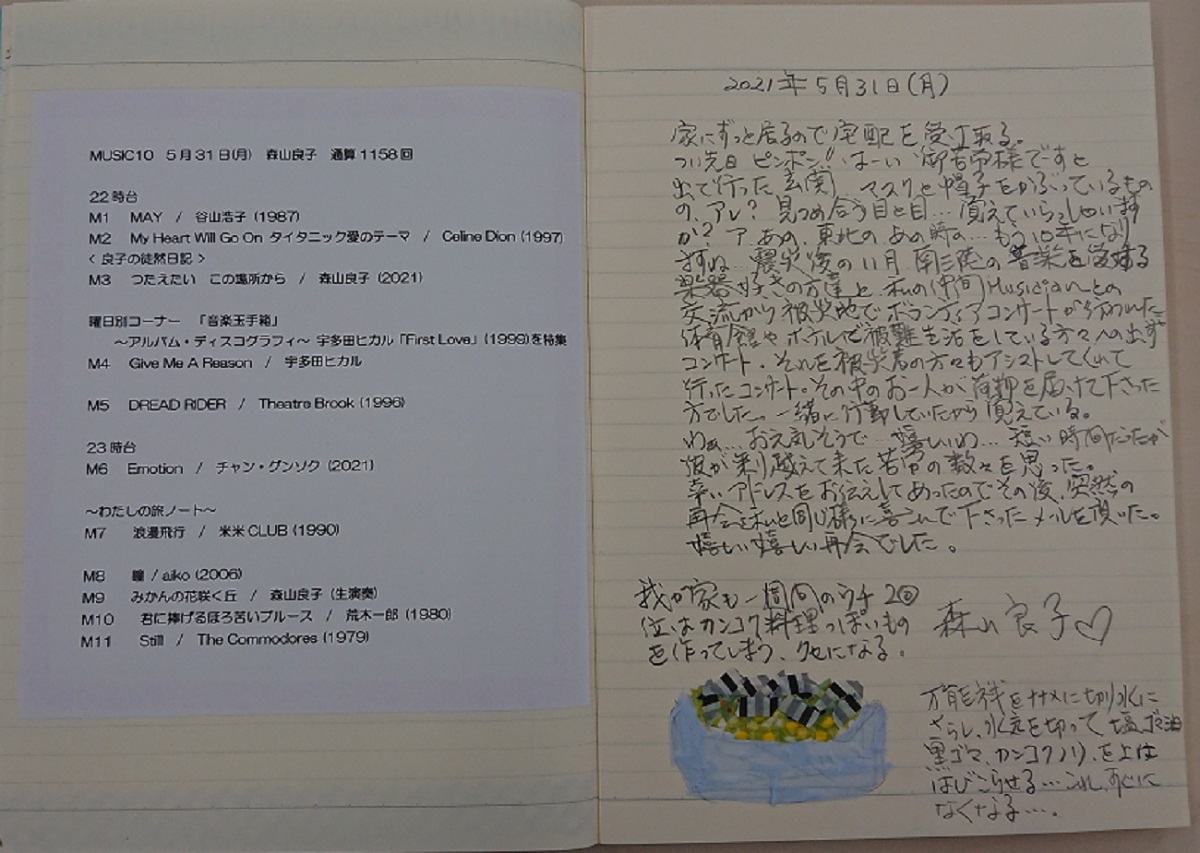 MUSIC10 5月31日(月) 森山良子 通算1158回
22時台
M1 MAY / 谷山浩子 (1987)
M2 My Heart Will Go On タイタニック愛のテーマ / Celine Dion (1997)
< 良子の徒然日記 >
M3 つたえたい この場所から / 森山良子 (2021)
曜日別コーナー 「音楽玉手箱」
～アルバム・ディスコグラフィ～ 宇多田ヒカル「First Love」(1999)を特集
M4 Give Me A Reason / 宇多田ヒカル
M5 DREAD RIDER / Theatre Brook (1996)
23時台
M6 Emotion / チャン・グンソク (2021)
～わたしの旅ノート～
M7 浪漫飛行 / 米米CLUB (1990)
M8 瞳 / aiko (2006)
M9 みかんの花咲く丘 / 森山良子 (生演奏)
M10 君に捧げるほろ苦いブルース / 荒木一郎 (1980)
M11 Still / The Commodores (1979)
2021年5月31日(月)
家にずっと居るので宅配を受け取る。
つい先日 ピンポン!! はーい 御苦労様ですと
出て行った玄関、マスクと帽子をかぶっているもの
の、アレ? 見つめ合う目と目… 覚えていらっしゃいます
か? ア、あの、東北の あの時の… もう10年になり
ますね… 震災後の11月 南三陸の 音楽を愛する
楽器好きの方達と 私の仲間Musicianとの
交流から被災地でボランティアコンサートが行われた
体育館やホテルで避難生活をしている方々への出す
コンサート、それを被災者の方々もアシストしてくれて
行ったコンサート。その中のお一人が荷物を届けて下さった
方でした。一緒に行動していたから覚えている。
わぁ… お元気そうで… 嬉しいわ… 短い時間だったが
彼が乗り越えて来た苦労の数々を思った。
幸いアドレスをお伝えしてあったのでその後、突然の
再会を私と同じ様に喜んで下さったメールを頂いた。
嬉しい嬉しい再会でした。
我が家も一週間のウチ2回
位はカンコク料理っぽいもの
を作ってしまう、クセになる。
森山良子♡
万能ネギをナナメに切り水に
さらし、水気を切って 塩、ゴマ油
黒ゴマ、カンコクノリ、を上に
はびこらせる…これ、すぐに
なくなる…。